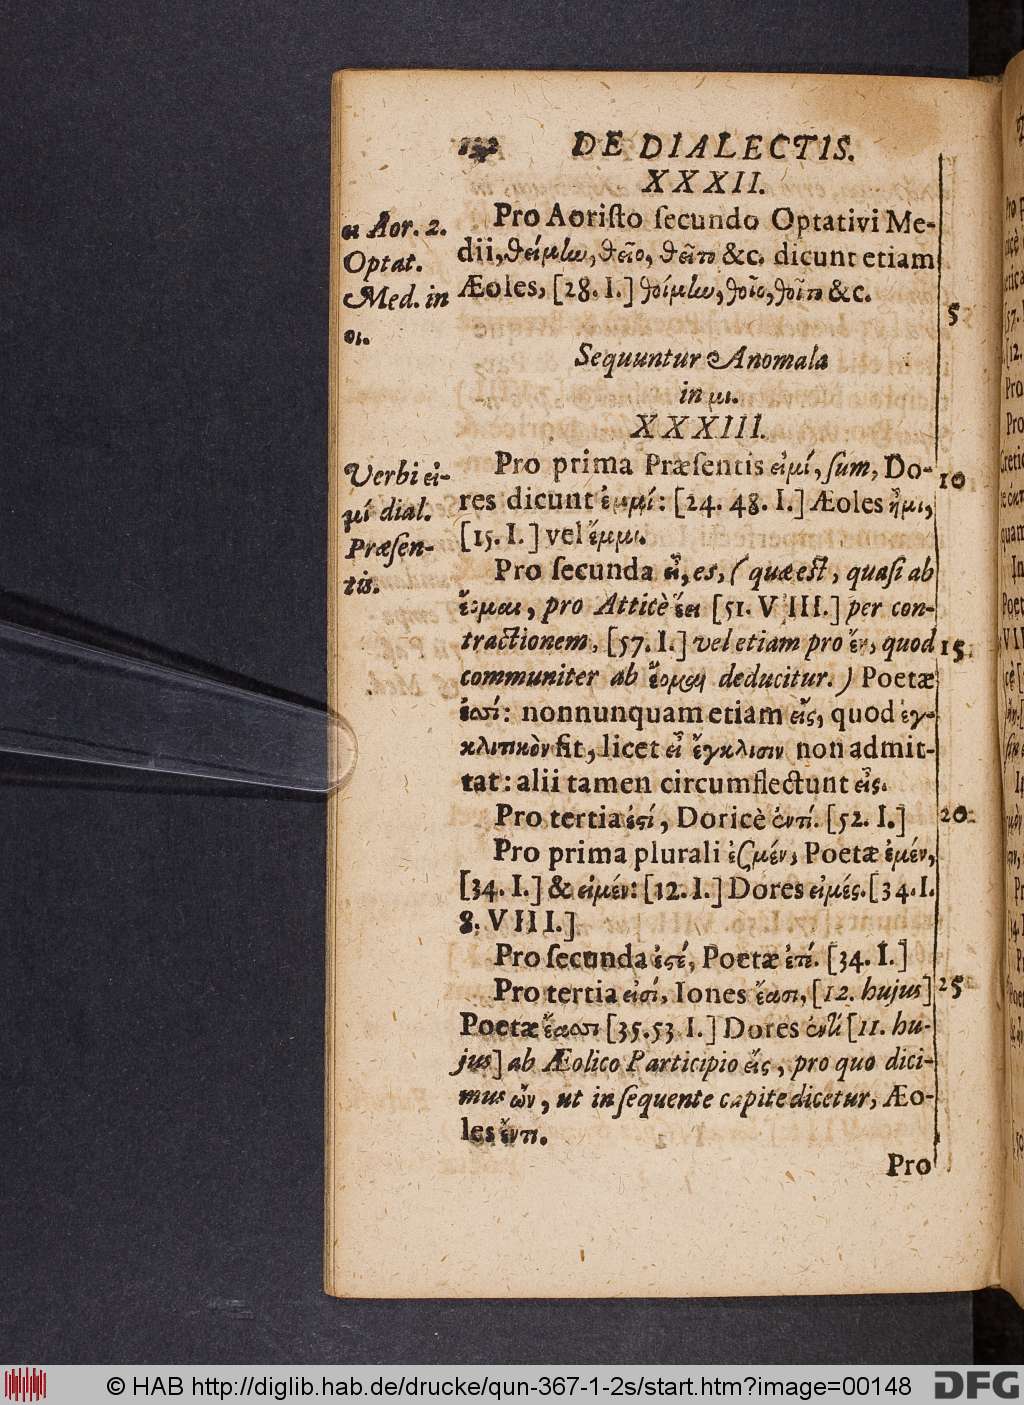 132 DE DIALECTIS.
XXXII.
ει Aor. 2.
Optat.
Med. in
οι.
Pro Aoristo secundo Optativi Me-
dii, θείμίω, θεῖο, θεῖτο &c. dicunt etiam
Æoles, [28. I.] θοίμίω, θοῖο, θοῖτο &c.
5
Sequuntur Anomala
in μι.
XXXIII.
Verbi εἰ-
μί dial.
Præsen-
tis.
Pro prima Præsentis εἰμί, sum, Do-
10
res dicunt ἐμμί: [24. 48. I.] Æoles ἦμι,
[15. I.] vel ἔμμι.
Pro secunda εἶ, es, (quæ est, quasi ab
ἔομαι, pro Atticè ἔει [51. VIII.] per con-
tractionem, [57. I.] vel etiam pro quod
15
communiter ab ἔομαι deducitur.) Poetæ
ἐσσί: nonnunquam etiam εἶς, quod ἐγ-
κλιτικὸν fit, licet εἶ ἔγκλισιν non admit-
tat: alii tamen circumflectunt εἶς.
Pro tertia ἐστί, Doricè ἐντί. [52. I.]
20
Pro prima plurali ἐσμέν, Poetæ ἐμέν,
[34. I.] & εἰμέν: [12. I.] Dores εἰμές. [34. I.
8. VIII.]
Pro secunda ἐστέ, Poetæ [34. I.]
Pro tertia εἰσί, Iones ἔασι, [12. hujus]
25
Poetæ ἔασσι [35. 53 I.] Dores ἐντί [11. hu-
jus] ab Æolico Participio εἴς, pro quo dici-
mus ὤν, ut in sequente capite dicetur, Æo-
les ἔντι.
Pro
© HAB http://diglib.hab.de/drucke/qun-367-1-2s/start.htm?image=00148 DFG